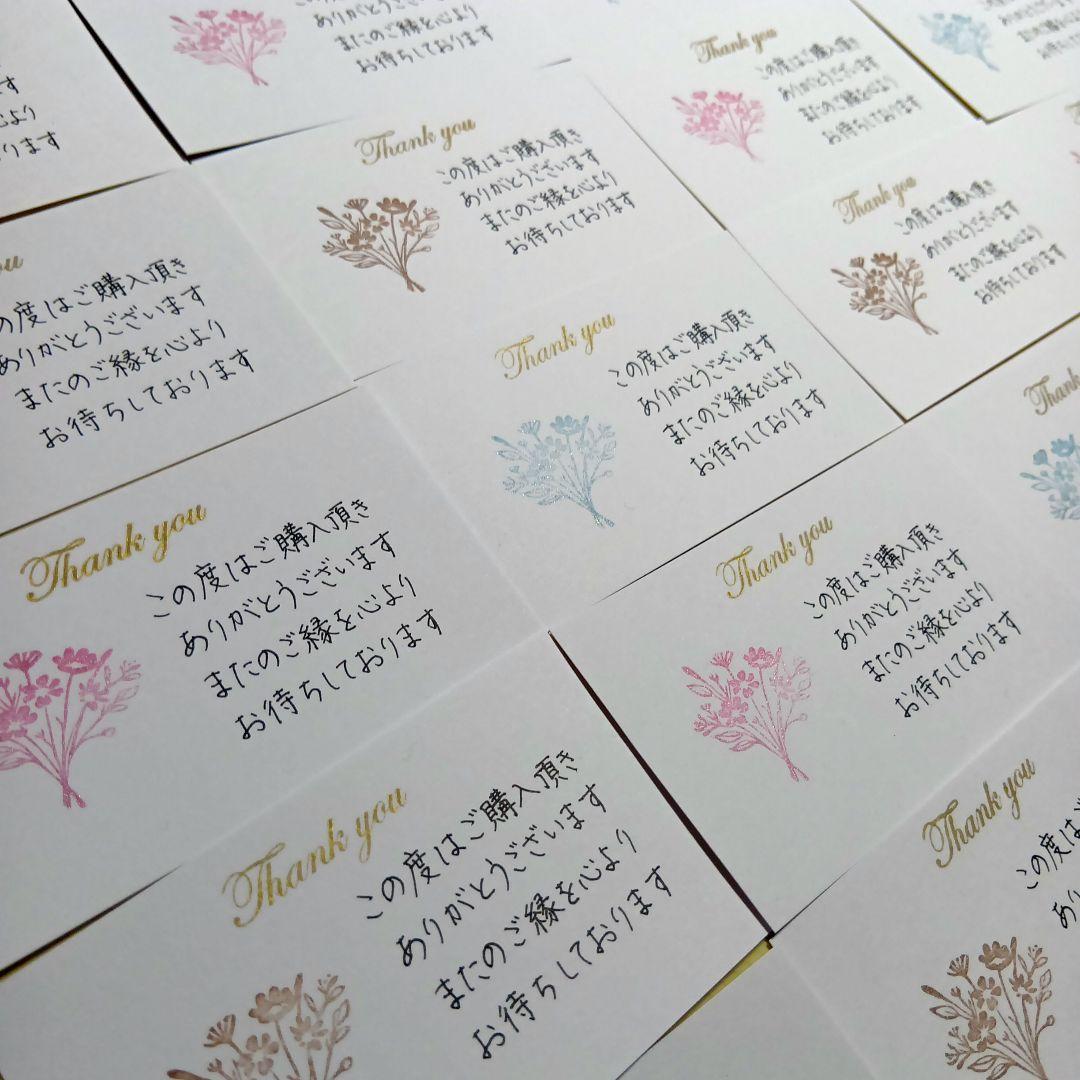 ます
心より
ります
またのご縁を心より
お待ちしております
Thank you
この度はご購入頂き
ありがとうございます
またのご縁を心より
お待ちしております
Thank you
この度はご購入頂き
ありがとうございます
またのご縁を心より
お待ちしております
Thank you
この度はご購入頂き
ありがとうございます
またのご縁を心より
お待ちしております
you
の度はご購入頂き
ありがとうございます
またのご縁を心より
お待ちしております
Thank you
この度はご購入頂き
ありがとうございます
またのご縁を心より
お待ちしております
Thank
Thank you
この度はご購入頂き
ありがとうございます
またのご縁を心より
お待ちしております
Thank you
この度はご購入頂き
ありがとうございます
またのご縁を心より
お待ちしております
Thank you
この度はご購入頂き
ありがとうございます
またのご縁を心より
お待ちしております
Thank you
この度は
あり